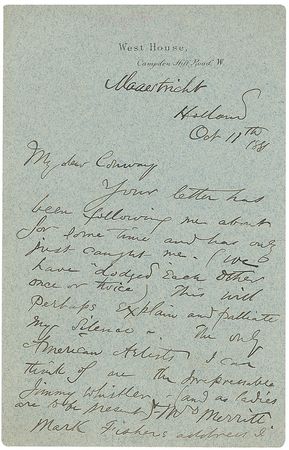 West House,
Campden Hill Road, W.
Maaestricht
Holland
Oct 11th 1881
My dear Conway
Your letter has
been following me about
for some time and has only
just caught me. (We
have dodged each other
once or twice) This will
perhaps explain and palliate
my silence. The only
American Artists I can
think of are the Irrepressable
Jimmy Whistler, (and as ladies
are to be present) Mrs Merritt
Mark Fisher's address I